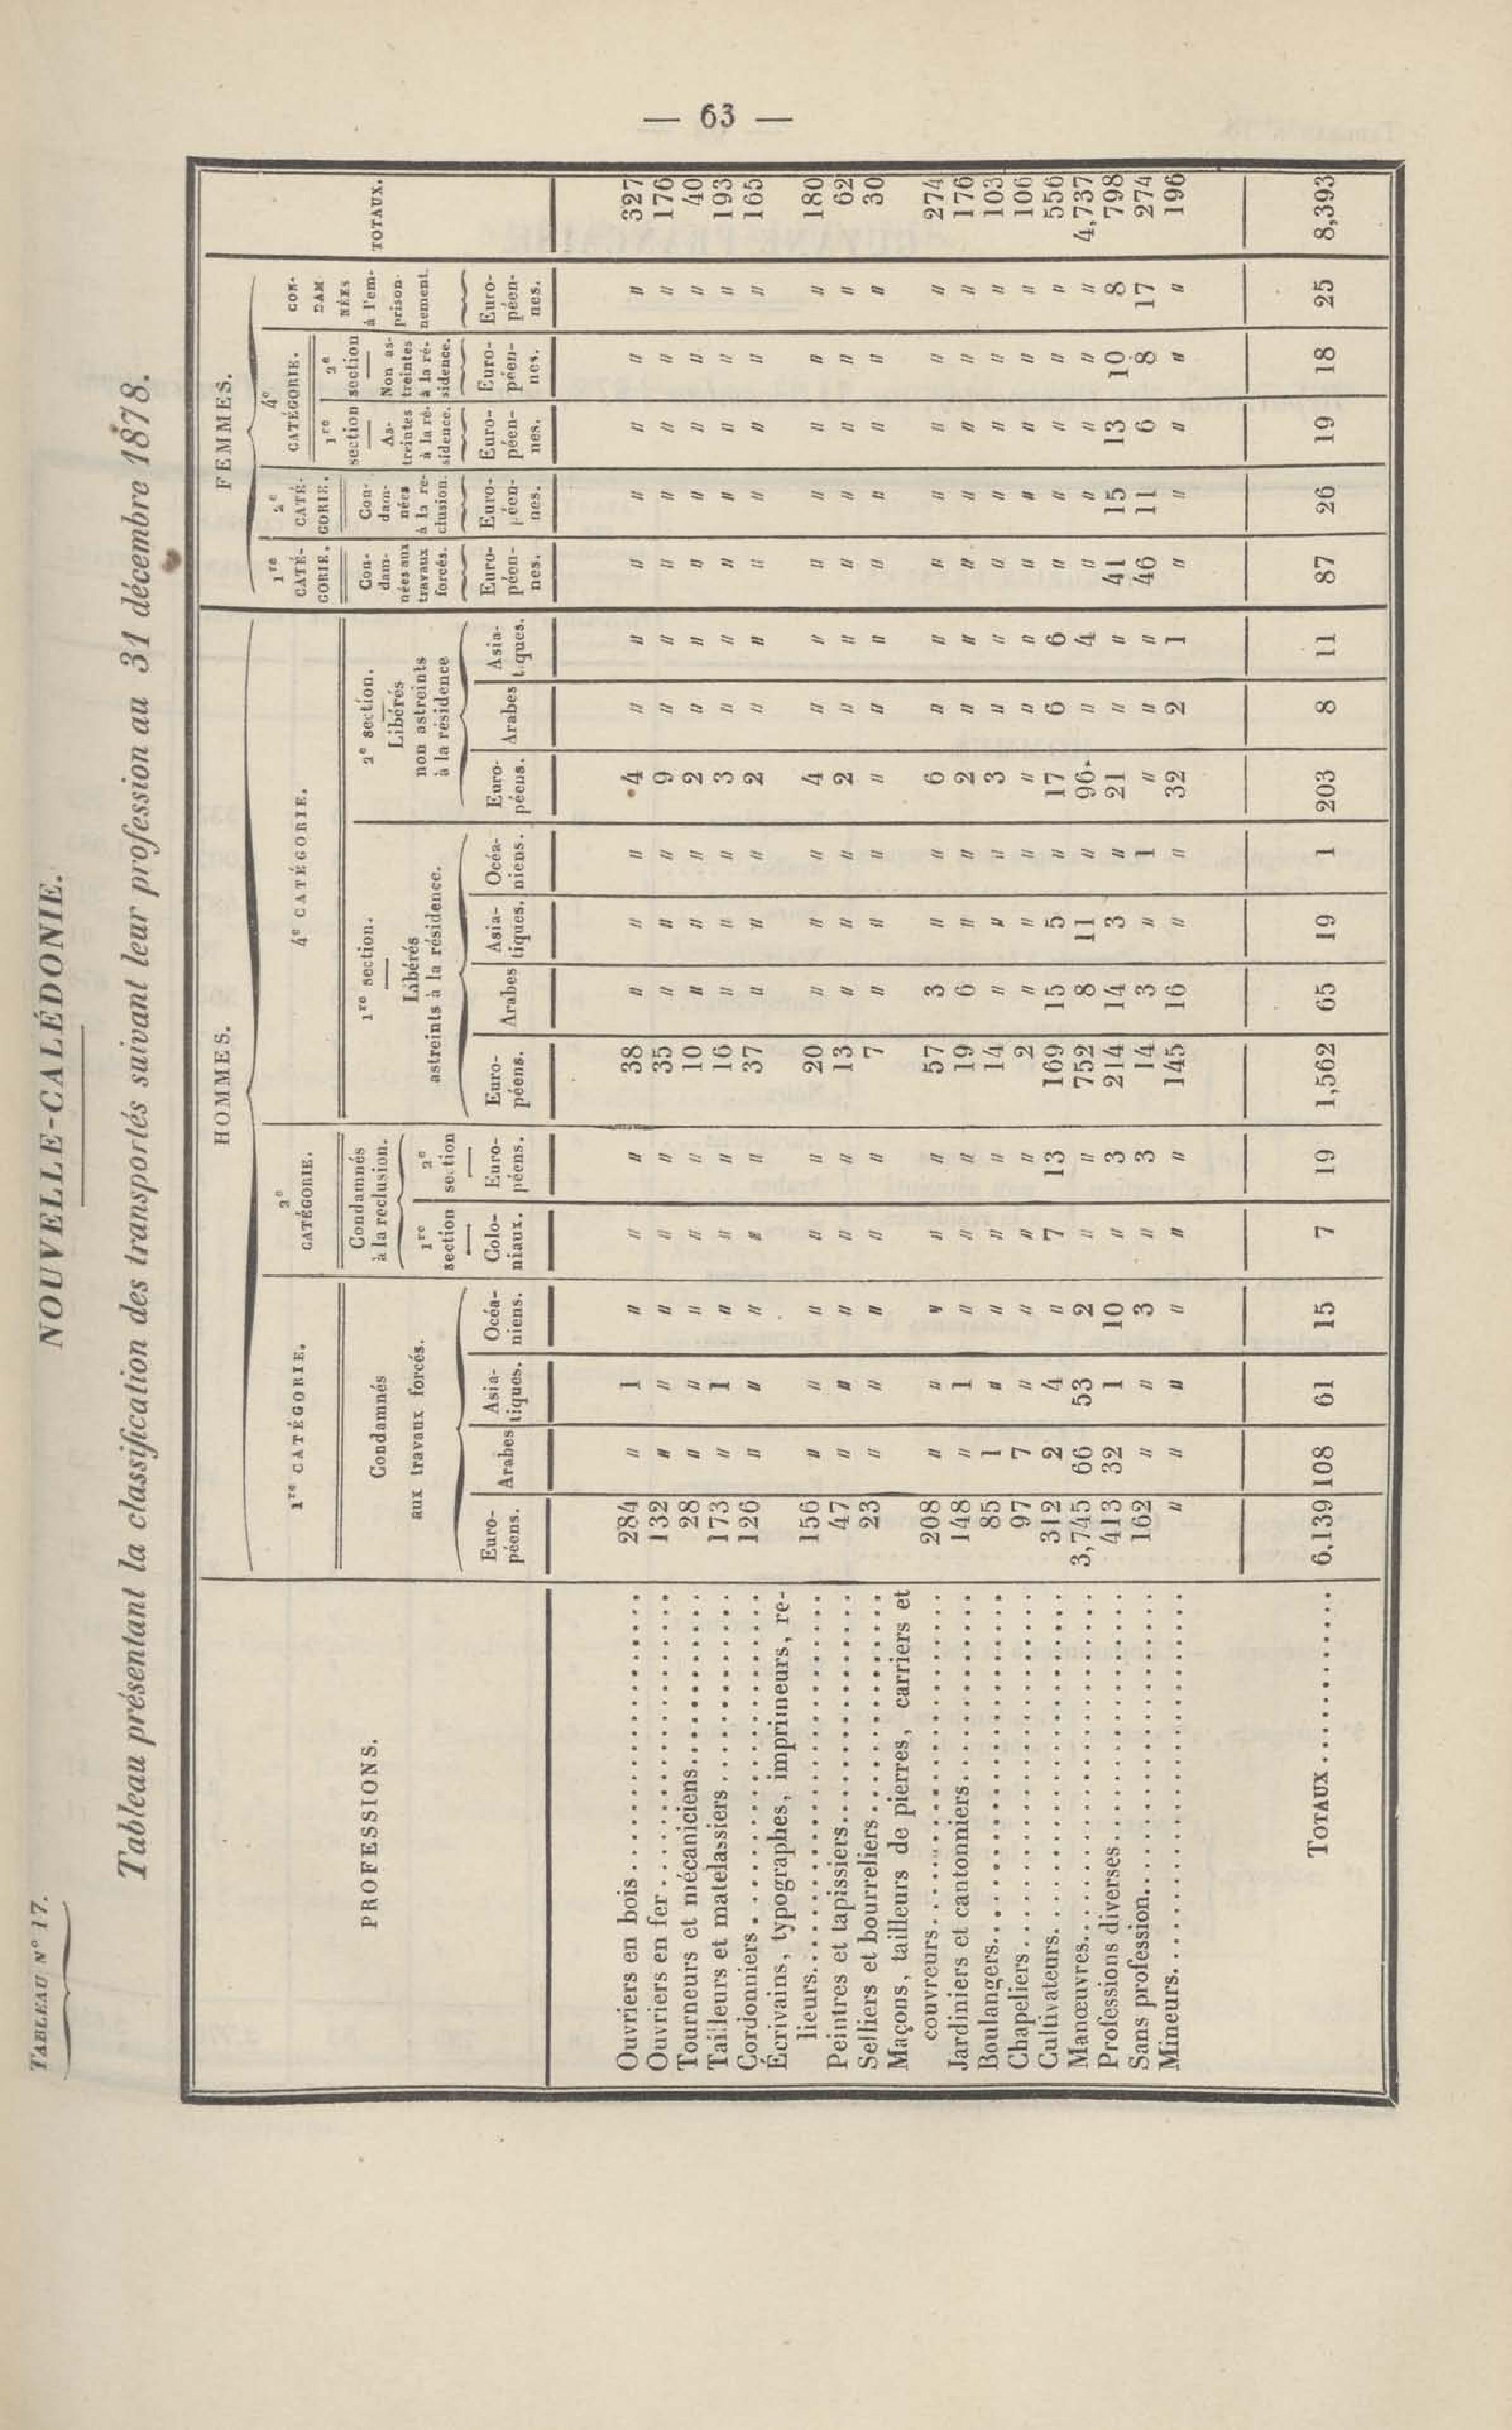 — 63 —
TABLEAU N° 17.
NOUVELLE-CALÉDONIE.
Tableau présentant la classification des transportés suivant leur profession au 31 décembre 1878.
PROFESSIONS.
HOMMES.
1re CATÉGORIE.
Condamnés
aux travaux forcés.
Euro-
péens.
Arabes
Asia-
tiques.
Océa-
niens.
2e
CATÉGORIE.
Condamnés
à la reclusion.
1re
section
Colo-
niaux.
2e
section
Euro-
péens.
4e CATÉGORIE.
1re section.
Libérés
astreints à la résidence.
Euro-
péens.
Arabes
Asia-
tiques.
Océa-
niens.
2e section.
Libérés
non astreints
à la résidence
Euro-
péens.
Arabes
Asia-
tiques.
FEMMES.
1re
CATÉ-
GORIE.
Con-
dam-
nées aux
travaux
forcés.
Euro-
péen-
nes.
2e
CATÉ-
GORIE.
Con-
dam-
nées
à la re-
clusion.
Euro-
péen-
nes.
4e
CATÉGORIE.
1re
section
As-
treintes
à la ré-
sidence.
Euro-
péen-
nes.
2e
section
Non as-
treintes
à la ré-
sidence.
Euro-
péen-
nes.
CON-
DAM
NÉES
à l'em-
prison-
nement.
Euro-
péen-
nes.
TOTAUX.
Ouvriers en bois 284 " 1 " " " 38 " " " 4 " " " " " " " 327
Ouvriers en fer 132 " " " " " 35 " " " 9 " " " " " " " 176
Tourneurs et mécaniciens 28 " " " " " 10 " " " 2 " " " " " " " 40
Tailleurs et matelassiers 173 " 1 " " " 16 " " " 3 " " " " " " " 193
Cordonniers 126 " " " " " 37 " " " 2 " " " " " " " 165
Écrivains, typographes, imprimeurs, re-
lieurs 156 " " " " " 20 " " " 4 " " " " " " " 180
Peintres et tapissiers 47 " " " " " 13 " " " 2 " " " " " " " 62
Selliers et bourreliers 23 " " " " " 7 " " " " " " " " " " " 30
Maçons, tailleurs de pierres, carriers et
couvreurs 208 " " " " " 57 3 " " 6 " " " " " " " 274
Jardiniers et cantonniers 148 " 1 " " " 19 6 " " 2 " " " " " " " 176
Boulangers 85 1 " " " " 14 " " " 3 " " " " " " " 103
Chapeliers 97 7 " " " " 2 " " " " " " " " " " " 106
Cultivateurs 312 2 4 " 7 13 169 15 5 " 17 6 6 " " " " " 556
Manœuvres 3,745 66 53 2 " " 752 8 11 " 96 " 4 " " " " " 4,737
Professions diverses 413 32 1 10 " 3 214 14 3 " 21 " " 41 15 13 10 8 798
Sans profession 162 " " 3 " 3 14 3 " 1 " " " 46 11 6 8 17 274
Mineurs " " " " " " 145 16 " " 32 2 1 " " " " " 196
TOTAUX 6,139 108 61 15 7 19 1,562 65 19 1 203 8 11 87 26 19 18 25 8,393